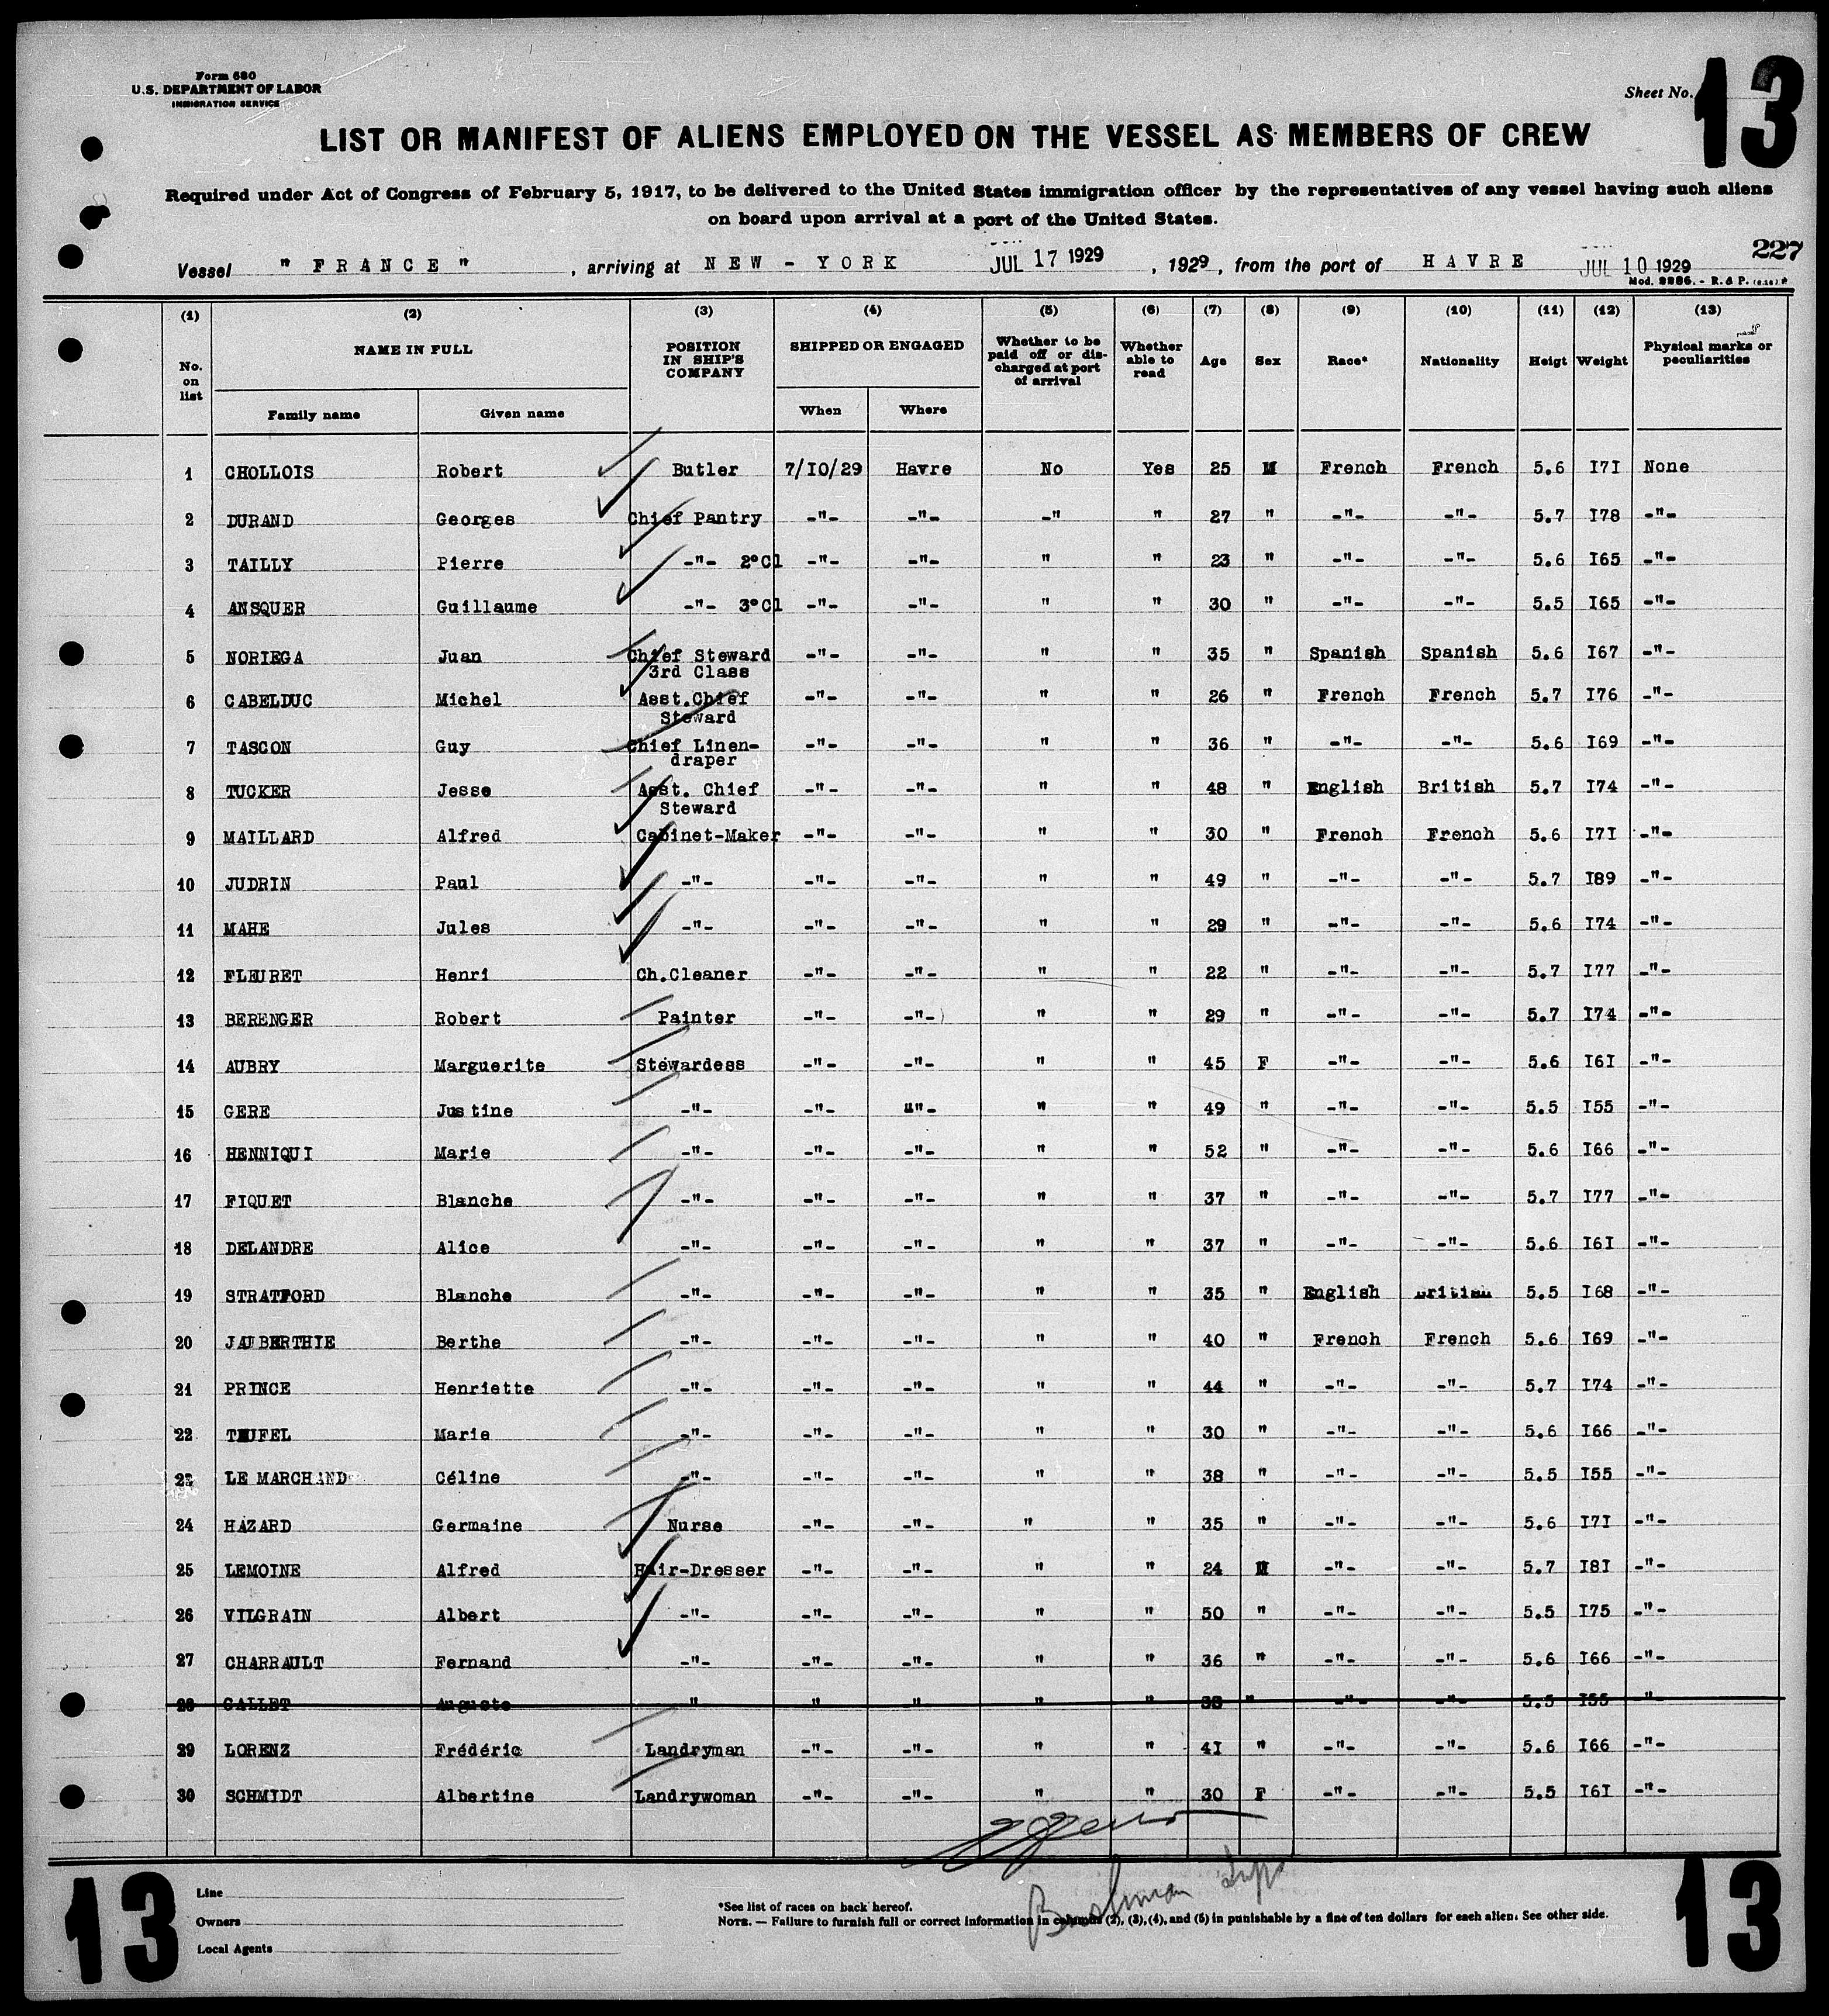 Form 680
U.S. DEPARTMENT OF LABOR
IMMIGRATION SERVICE
Sheet No. 13
LIST OR MANIFEST OF ALIENS EMPLOYED ON THE VESSEL AS MEMBERS OF CREW
Required under Act of Congress of February 5, 1917, to be delivered to the United States immigration officer by the representatives of any vessel having such aliens
on board upon arrival at a port of the United States.
227
Vessel " FRANCE ", arriving at NEW - YORK JUL 17 1929, 1929, from the port of HAVRE JUL 10 1929
Mod. 2286. - R. & P.
(1) (2) (3) (4) (5) (6) (7) (8) (9) (10) (11) (12) (13)
No. on list NAME IN FULL POSITION IN SHIP'S COMPANY SHIPPED OR ENGAGED Whether to be paid off or discharged at port of arrival Whether able to read Age Sex Race* Nationality Heigt Weight Physical marks or peculiarities
Family name Given name When Where
1 CHOLLOIS Robert Butler 7/10/29 Havre No Yes 25 M French French 5.6 I7I None
2 DURAND Georges Chief Pantry -"- -"- -" " 27 " -"- -"- 5.7 I78 -"-
3 TAILLY Pierre -"- 2°Cl -"- -"- " " 23 " -"- -"- 5.6 I65 -"-
4 ANSQUER Guillaume -"- 3°Cl -"- -"- " " 30 " -"- -"- 5.5 I65 -"-
5 NORIEGA Juan Chief Steward 3rd Class -"- -"- " " 35 " Spanish Spanish 5.6 I67 -"-
6 CABELDUC Michel Asst.Chief Steward -"- -"- " " 26 " French French 5.7 I76 -"-
7 TASCON Guy Chief Linen-draper -"- -"- " " 36 " -"- -"- 5.6 I69 -"-
8 TUCKER Jesse Asst. Chief Steward -"- -"- " " 48 " English British 5.7 I74 -"-
9 MAILLARD Alfred Cabinet-Maker -"- -"- " " 30 " French French 5.6 I7I -"-
10 JUDRIN Paul -"- -"- -"- " " 49 " -"- -"- 5.7 I89 -"-
11 MAHE Jules -"- -"- -"- " " 29 " -"- -"- 5.6 I74 -"-
12 FLEURET Henri Ch.Cleaner -"- -"- " " 22 " -"- -"- 5.7 I77 -"-
13 BERENGER Robert Painter -"- -"- " " 29 " -"- -"- 5.7 I74 -"-
14 AUBRY Marguerite Stewardess -"- -"- " " 45 F -"- -"- 5.6 I6I -"-
15 GERE Justine -"- -"- -"- " " 49 " -"- -"- 5.5 I55 -"-
16 HENNIQUI Marie -"- -"- -"- " " 52 " -"- -"- 5.6 I66 -"-
17 FIQUET Blanche -"- -"- -"- " " 37 " -"- -"- 5.7 I77 -"-
18 DELANDRE Alice -"- -"- -"- " " 37 " -"- -"- 5.6 I6I -"-
19 STRATFORD Blanche -"- -"- -"- " " 35 " English British 5.5 I68 -"-
20 JAUBERTHIE Berthe -"- -"- -"- " " 40 " French French 5.6 I69 -"-
21 PRINCE Henriette -"- -"- -"- " " 44 " -"- -"- 5.7 I74 -"-
22 TEUFEL Marie -"- -"- -"- " " 30 " -"- -"- 5.6 I66 -"-
23 LE MARCHAND Céline -"- -"- -"- " " 38 " -"- -"- 5.5 I55 -"-
24 HAZARD Germaine Nurse -"- -"- " " 35 " -"- -"- 5.6 I7I -"-
25 LEMOINE Alfred Hair-Dresser -"- -"- " " 24 M -"- -"- 5.7 I8I -"-
26 VILGRAIN Albert -"- -"- -"- " " 50 " -"- -"- 5.5 I75 -"-
27 CHARRAULT Fernand -"- -"- -"- " " 36 " -"- -"- 5.6 I66 -"-
28 GALLET Auguste " " " " " 38 " -"- -"- 5.5 I55 "
29 LORENZ Frédéric Landryman -"- -"- " " 41 " -"- -"- 5.6 I66 -"-
30 SCHMIDT Albertine Landrywoman -"- -"- " " 30 F -"- -"- 5.5 I6I -"-
Bushman
13
13
Line
Owners
Local Agents
*See list of races on back hereof.
NOTE. — Failure to furnish full or correct information in columns (2), (3), (4), and (5) in punishable by a fine of ten dollars for each alien. See other side.